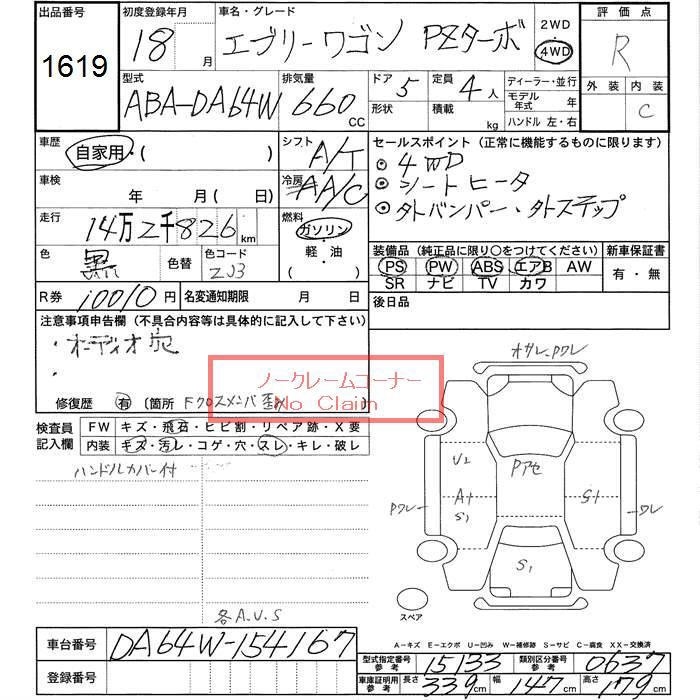 出品番号
1619
初度登録年月
18 月
車名・グレード
エブリーワゴン PZターボ
2WD
4WD
評価点
R
外装 内装
C
型式
ABA-DA64W
排気量
660 CC
ドア 5
形状
定員 4 人
積載 kg
ディーラー・並行
モデル年式 年
ハンドル 左・右
車歴
自家用・( )
シフト A/T
車検
年 月( 日)
冷房 AA/C
走行
14万2千826 km
燃料
ガソリン
軽・油
( )
色
黒
色替
色コード
ZJ3
R券 10010円
名変通知期限 月 日
セールスポイント(正常に機能するものに限ります)
4WD
シートヒータ
タトバンパー・タトステップ
装備品(純正品に限り○をつけてください)
PS PW ABS エアB AW
SR ナビ TV カワ
新車保証書
有・無
後日品
注意事項申告欄(不具合内容等は具体的に記入して下さい)
・オーディオ穴
・
修復歴 有 〔箇所 Fクロスメンバ歪
ノークレームコーナー
No Claim
検査員記入欄
FW キズ・飛石・ヒビ割・リペア跡・X要
内装 キズ・汚レ・コゲ・穴・スレ・キレ・破レ
ハンドルカバー付
各A.U.S
オサレ、Pワレ
U2
Pアセ
Pワレ
A+
S1
G+
ワレ
S1
スペア
A-キズ E-エクボ U-凹み W-補修跡 S-サビ C-腐食 XX-交換済
車台番号 DA64W-154167
登録番号
型式指定番号参考 15133
類別区分番号参考 0637
車庫証明用参考 長さ 339cm 幅 147cm 高さ 179cm